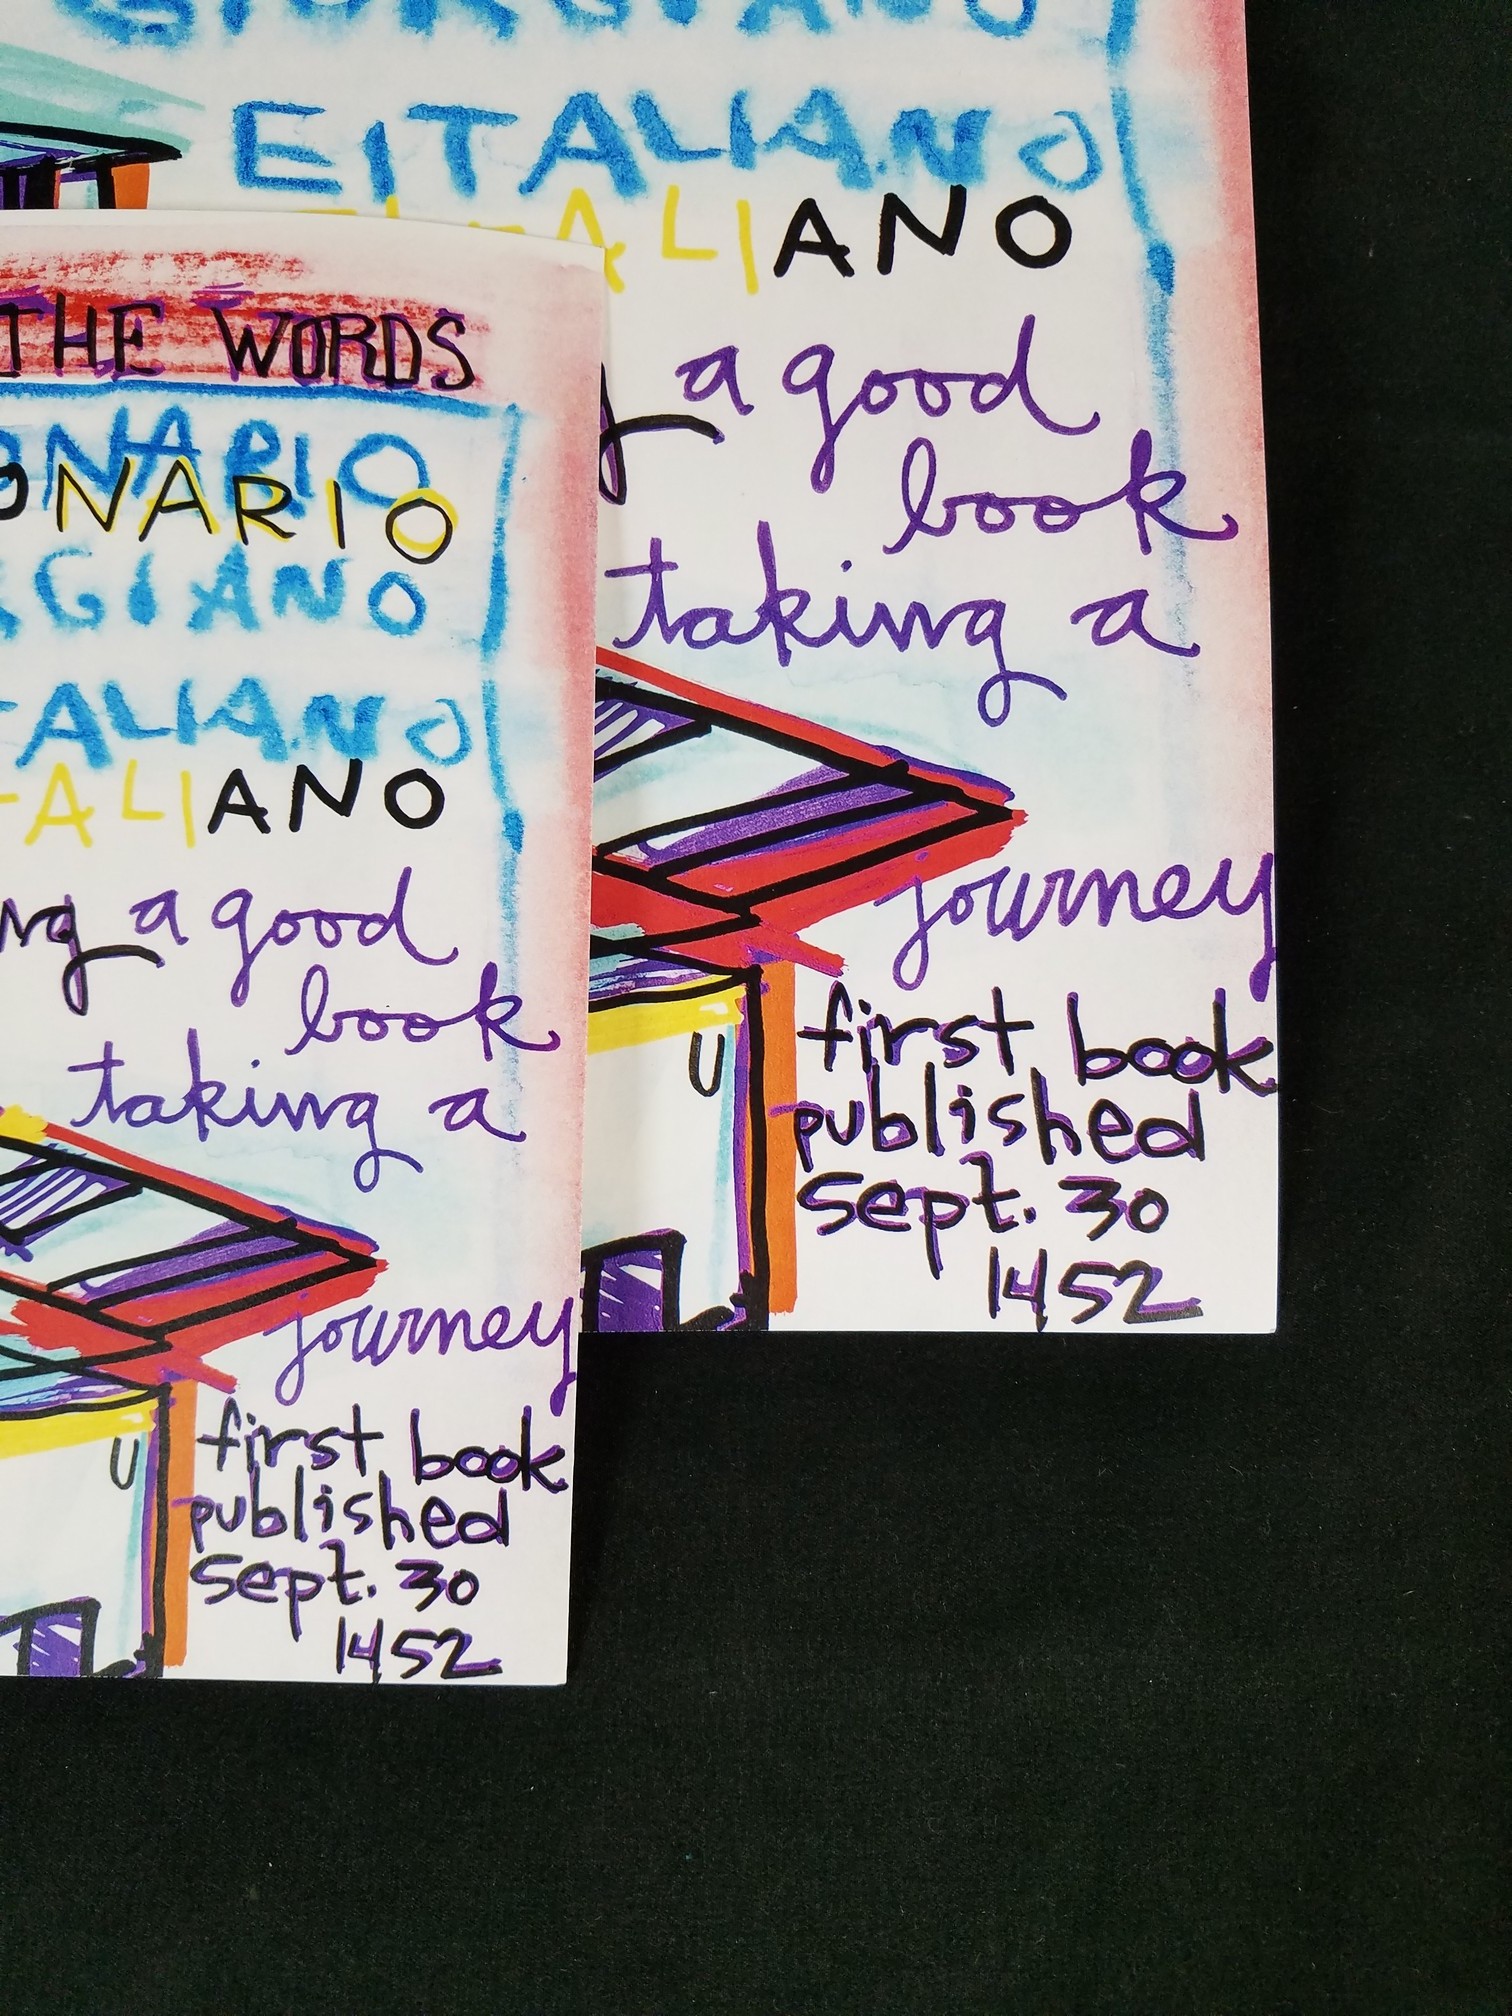 GIORGIANO
EITALIANO
ALIANO
a good
book
taking a
journey
first book
published
sept. 30
1452
THE WORDS
ONARIO
ONARIO
GIANO
TALIANO
TALIANO
ng a good
book
taking a
journey
first book
published
sept. 30
1452